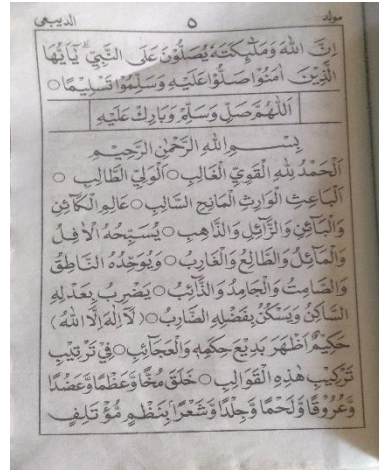 مولد ٥ الديبعي
اِنَّ اللهَ وَمَلٰٓئِكَتَهٗ يُصَلُّوْنَ عَلَى النَّبِيِّ يٰٓاَيُّهَا
الَّذِيْنَ اٰمَنُوْا صَلُّوْا عَلَيْهِ وَسَلِّمُوْا تَسْلِيْمًا ○
اَللّٰهُمَّ صَلِّ وَسَلِّمْ وَبَارِكْ عَلَيْهِ
بِسْمِ اللهِ الرَّحْمٰنِ الرَّحِيْمِ
اَلْحَمْدُ لِلّٰهِ الْقَوِيِّ الْغَالِبِ ○ اَلْوَلِيِّ الطَّالِبِ ○
اَلْبَاعِثِ الْوَارِثِ الْمَانِحِ السَّالِبِ ○ عَالِمِ الْكَآئِنِ
وَالْبَآئِنِ وَالزَّآئِلِ وَالذَّاهِبِ ○ يُسَبِّحُهُ الْاٰفِلُ
وَالْمَآئِلُ وَالطَّالِعُ وَالْغَارِبُ ○ وَيُوَحِّدُهُ النَّاطِقُ
وَالصَّامِتُ وَالْجَامِدُ وَالذَّآئِبُ ○ يَضْرِبُ بِعَدْلِهِ
السَّاكِنُ وَيَسْكُنُ بِفَضْلِهِ الضَّارِبُ ○ (لَآاِلٰهَ اِلَّا اللهُ)
حَكِيْمٌ اَظْهَرَ بَدِيْعَ حِكَمِهٖ وَالْعَجَآئِبِ ○ فِيْ تَرْتِيْبِ
تَرْكِيْبِ هٰذِهِ الْقَوَالِبِ ○ خَلَقَ مُخًّا وَّعَظْمًا وَّعَضُدًا
وَّعُرُوْقًا وَّلَحْمًا وَّجِلْدًا وَّشَعْرًا بِنَظْمٍ مُّؤْتَلِفٍ